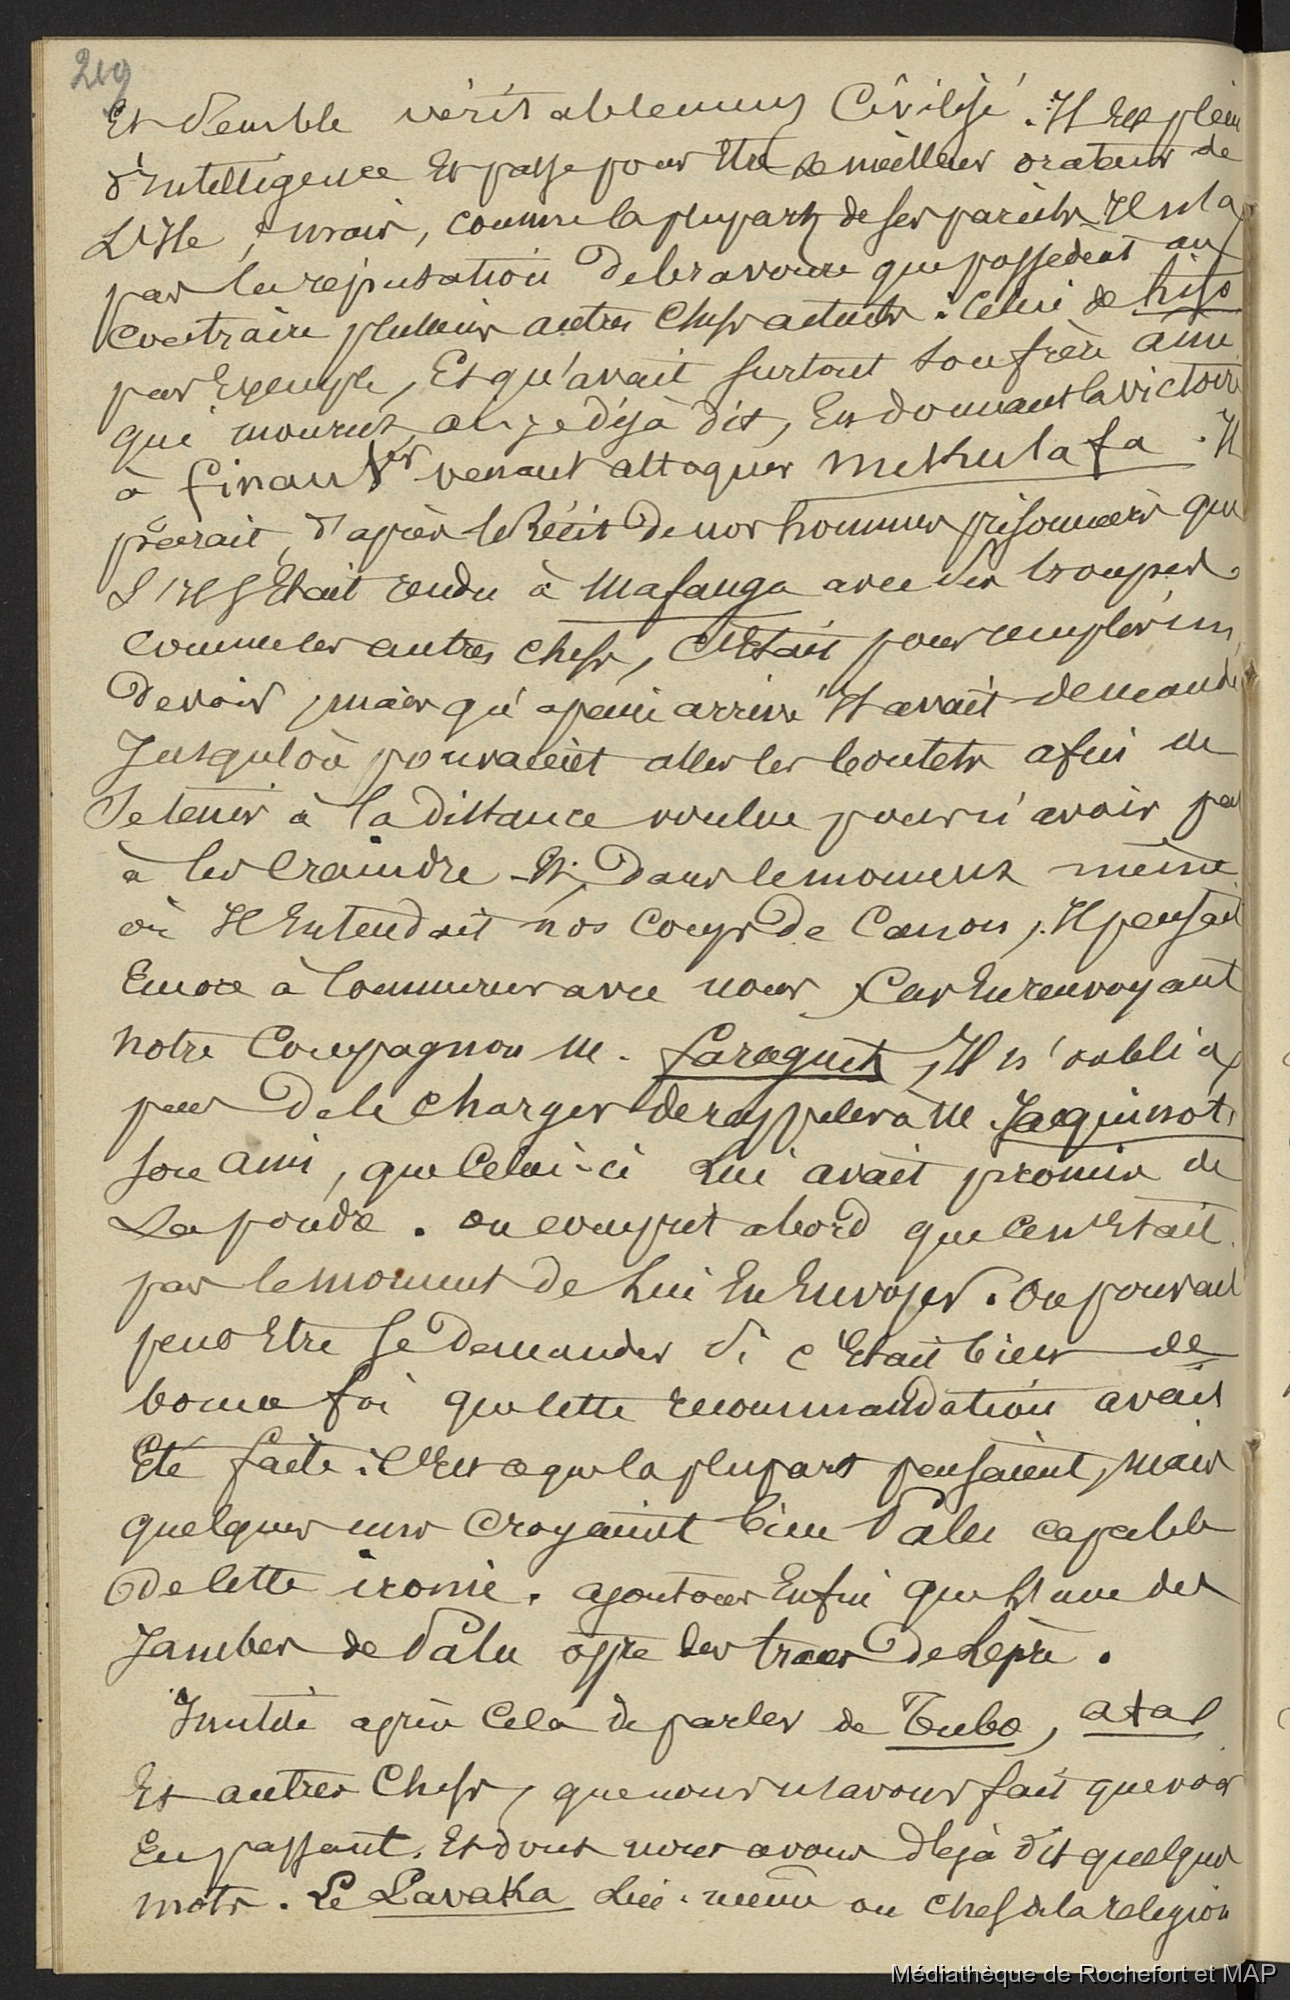 219
Et semble véritablement Civilisé. Il Est plein
d'intelligence Et passe pour Etre Le meilleur orateur de
L'Ile, mais, comme la plupart de ses pareils Il n'a
pas la réputation de bravoure que possèdent au
Contraire plusieurs autres Chefs actuels. Celui de hifo
par Exemple, Et qu'avait surtout son frère ainé
qui mourut, ai-je déjà dit, En donnant la victoire
à finau venant attaquer Mukulafa. Il
paraît, d'après le Récit de nos hommes prisonniers que
S'Il s'Etait rendu à Mafanga avec ses troupes
Comme les autres chefs, C'Etait pour remplir un
Devoir, mais qu'à peine arrivé Il avait demandé
Jusqu'où pouvaient aller les boulets afin de
Se tenir à la distance voulue pour n'avoir pas
à les Craindre Et, dans le moment même
où Il Entendait nos Coups de Canon, Il pensait
Encore à Commercer avec nous, Car En renvoyant
notre Compagnon M. faraguet, Il n'oublia
pas De le Charger de rappeler à M. Jacquinot
son ami, que Celui-ci Lui avait promis de
La poudre. on comprit abord que Ce n'Etait
pas le moment de Lui En Envoyer. On pouvait
peut Etre se Demander Si c'Etait bien de
bonne foi que Cette recommandation avait
Eté faite: C'Est ce que la plupart pensaient, mais
quelques uns Croyaient bien Palu capable
De Cette ironie. ajoutons Enfin que L'une des
Jambes de Palu offre des traces De Lèpre.
Inutile après Cela de parler de Tubo, ata
Et autres Chefs, que nous n'avons fait que voir
En passant. Et dont nous avons déjà dit quelques
mots. Le Lavaka Lui-même ou chef de la religion
Médiathèque de Rochefort et MAP